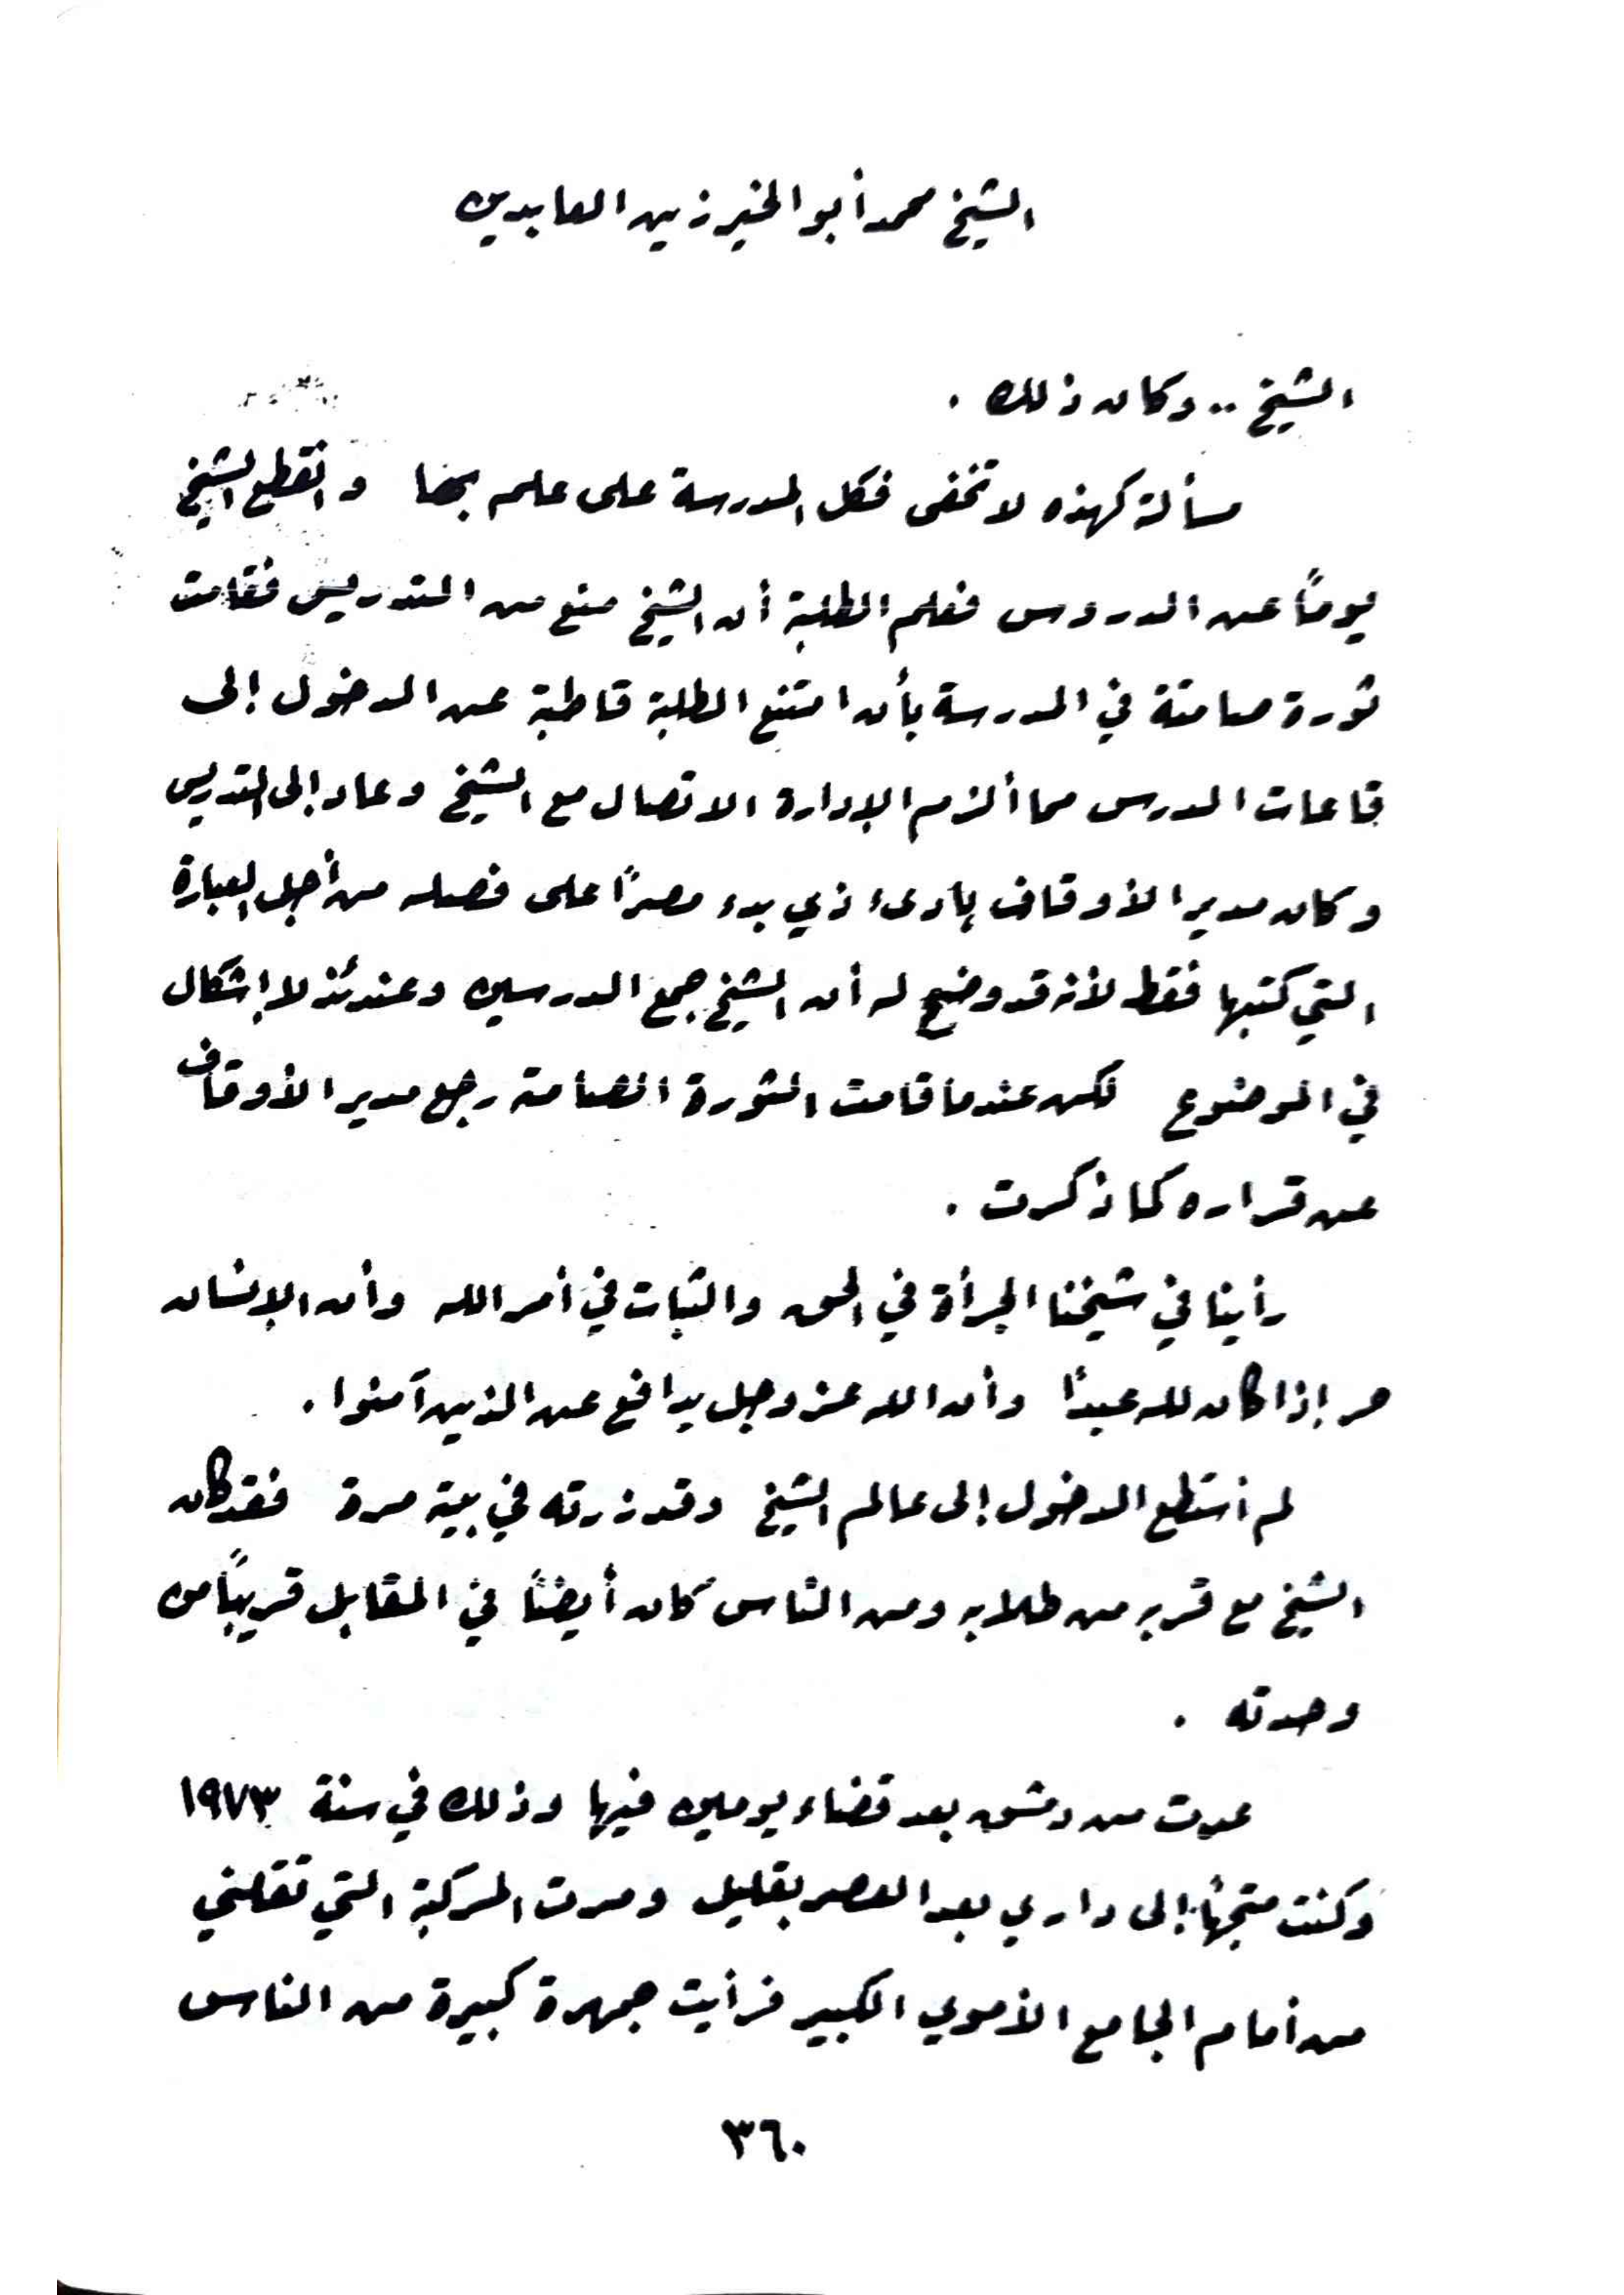 الشيخ محمد أبو الخير زين العابدين
الشيخ .. وكان ذلك .
مسألة كهذه لا تخفى فكل المدرسة على علم بها وانقطع الشيخ
يوماً عن الدروس فعلم الطلبة أن الشيخ منع من التدريس فقامت
ثورة صامتة في المدرسة بأن امتنع الطلبة قاطبة عن الدخول إلى
قاعات الدرس مما ألزم الإدارة الاتصال مع الشيخ وعاد إلى التدريس
وكان مدير الأوقاف بادىء ذي بدء مصراً على فصله من أجل العبارة
التي كتبها فقط لأنه قد وضح له أن الشيخ جمع الدرسين وعندئذ لا إشكال
في الموضوع لكن عندما قامت الثورة الصامتة رجع مدير الأوقاف
عن قراره كما ذكرت .
رأينا في شيخنا الجرأة في الحق والثبات في أمر الله وأن الإنسان
حر إذا كان لله عبداً وأن الله عز وجل يدافع عن الذين آمنوا .
لم أستطع الدخول إلى عالم الشيخ وقد زرته في بيته مرة فقد كان
الشيخ مع قربه من طلابه ومن الناس كان أيضاً في المقابل قريباً من
وحدته .
عدت من دمشق بعد قضاء يومين فيها وذلك في سنة ١٩٧٣
وكنت متجهاً إلى داري بعد العصر بقليل ومرت المركبة التي تقلني
من أمام الجامع الأموي الكبير فرأيت جمهرة كبيرة من الناس
٣٦٠